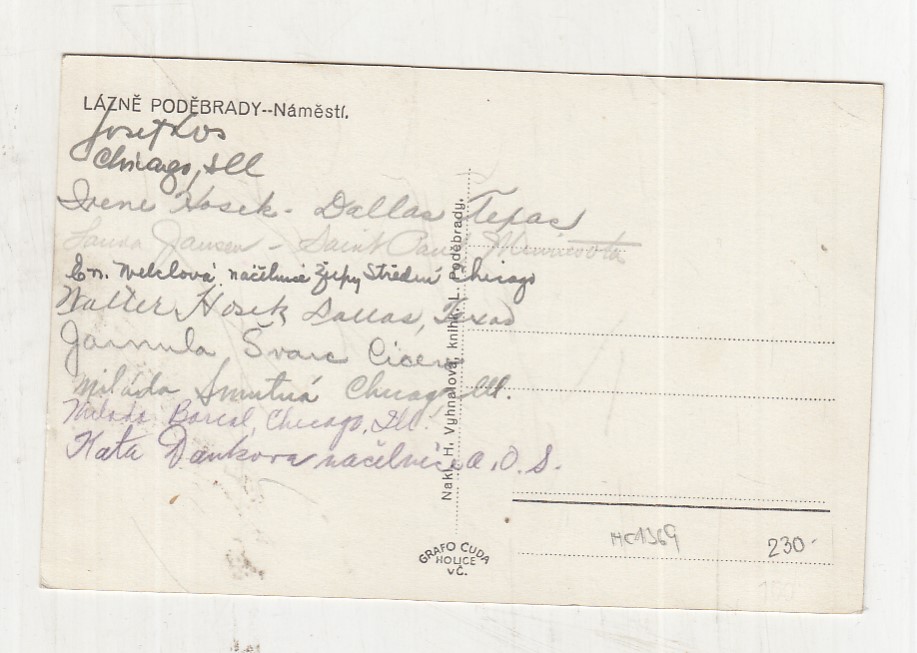 LÁZNĚ PODĚBRADY--Náměstí.
Josef Kos
Chicago, Ill
Irene Hosek - Dallas Texas
Jansen - Saint Paul Minnesota
náčelnice Župy Střední Chicago
Walter Hosek, Dallas, Texas
Jarmula Švarc Cicero
Miláda Smutná Chicago Ill.
Milada Barcal, Chicago, Ill.
Kata Dankova náčelnice A. O. S.
Nakl. H. Vyhnalová, knihk. L. Poděbrady.
GRAFO ČUDA
HOLICE
VČ.
MC1369
230-